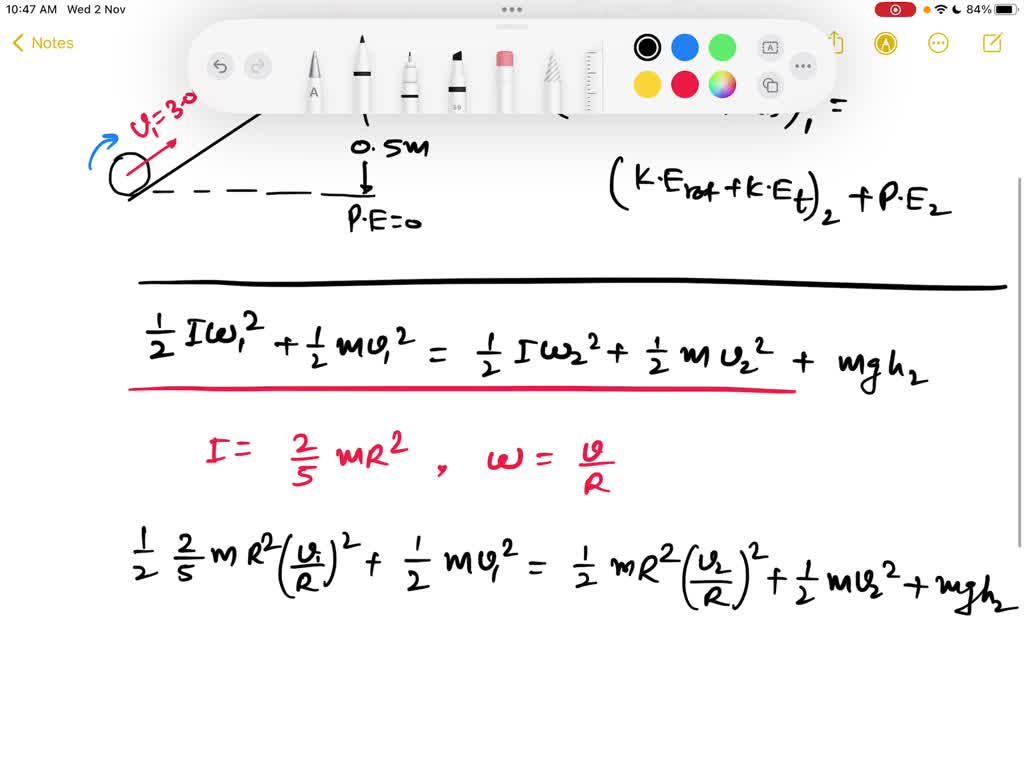 10:47 AM Wed 2 Nov
84%
Notes
A
59
A
v₁=3.0
0.5m
P.E=0
)₁ =
(K.E_rot + K.E_t)₂ + P.E₂
1/2 Iω₁² + 1/2 mv₁² = 1/2 Iω₂² + 1/2 mv₂² + mgh₂
I = 2/5 mR² , ω = v/R
1/2 2/5 mR² (v₁/R)² + 1/2 mv₁² = 1/2 mR² (v₂/R)² + 1/2 mv₂² + mgh₂